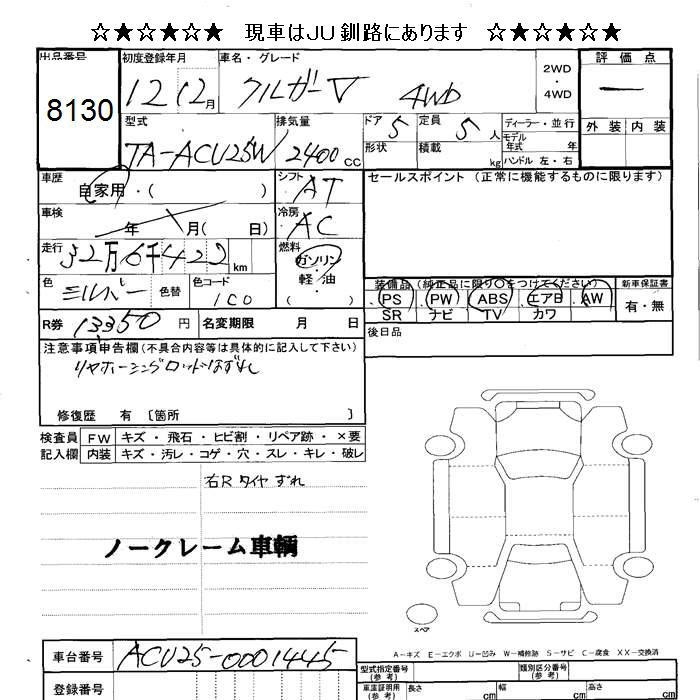 ☆★☆★☆★ 現車はJU釧路にあります ☆★☆★☆★
出品番号 初度登録年月 車名・グレード 2WD・4WD 評価点
8130 12 12月 クルガーV 4WD ー
型式 排気量 ドア 5 定員 5人 ディーラー・並行 外装 内装
TA-ACU25W 2400cc 形状 積載 kg モデル年式 年 ハンドル 左・右
車歴 自家用・( ) シフト AT セールスポイント (正常に機能するものに限ります)
車検 年 月(日) 冷房 AC
走行 32万6千422km 燃料 ガソリン・軽油 ( )
色 シルバー 色替 色コード 1C0
装備品(純正品に限り○をつけてください) 新車保証書
PS PW ABS エアB AW 有・無
SR ナビ TV カワ
R券 13350円 名変期限 月 日 後日品
注意事項申告欄(不具合内容等は具体的に記入して下さい)
リヤホーシングロットはずれ
修復歴 有 〔箇所 〕
検査員 FW キズ・飛石・ヒビ割・リペア跡・×要
記入欄 内装 キズ・汚レ・コゲ・穴・スレ・キレ・破レ
右R タイヤ ずれ
ノークレーム車輌
スペア
A-キズ E-エクボ U-凹み W-補修跡 S-サビ C-腐食 XX-交換済
車台番号 ACU25-0001445
型式指定番号(参考) 類別区分番号(参考)
登録番号 車庫証明用(参考) 長さ cm 幅 cm 高さ cm